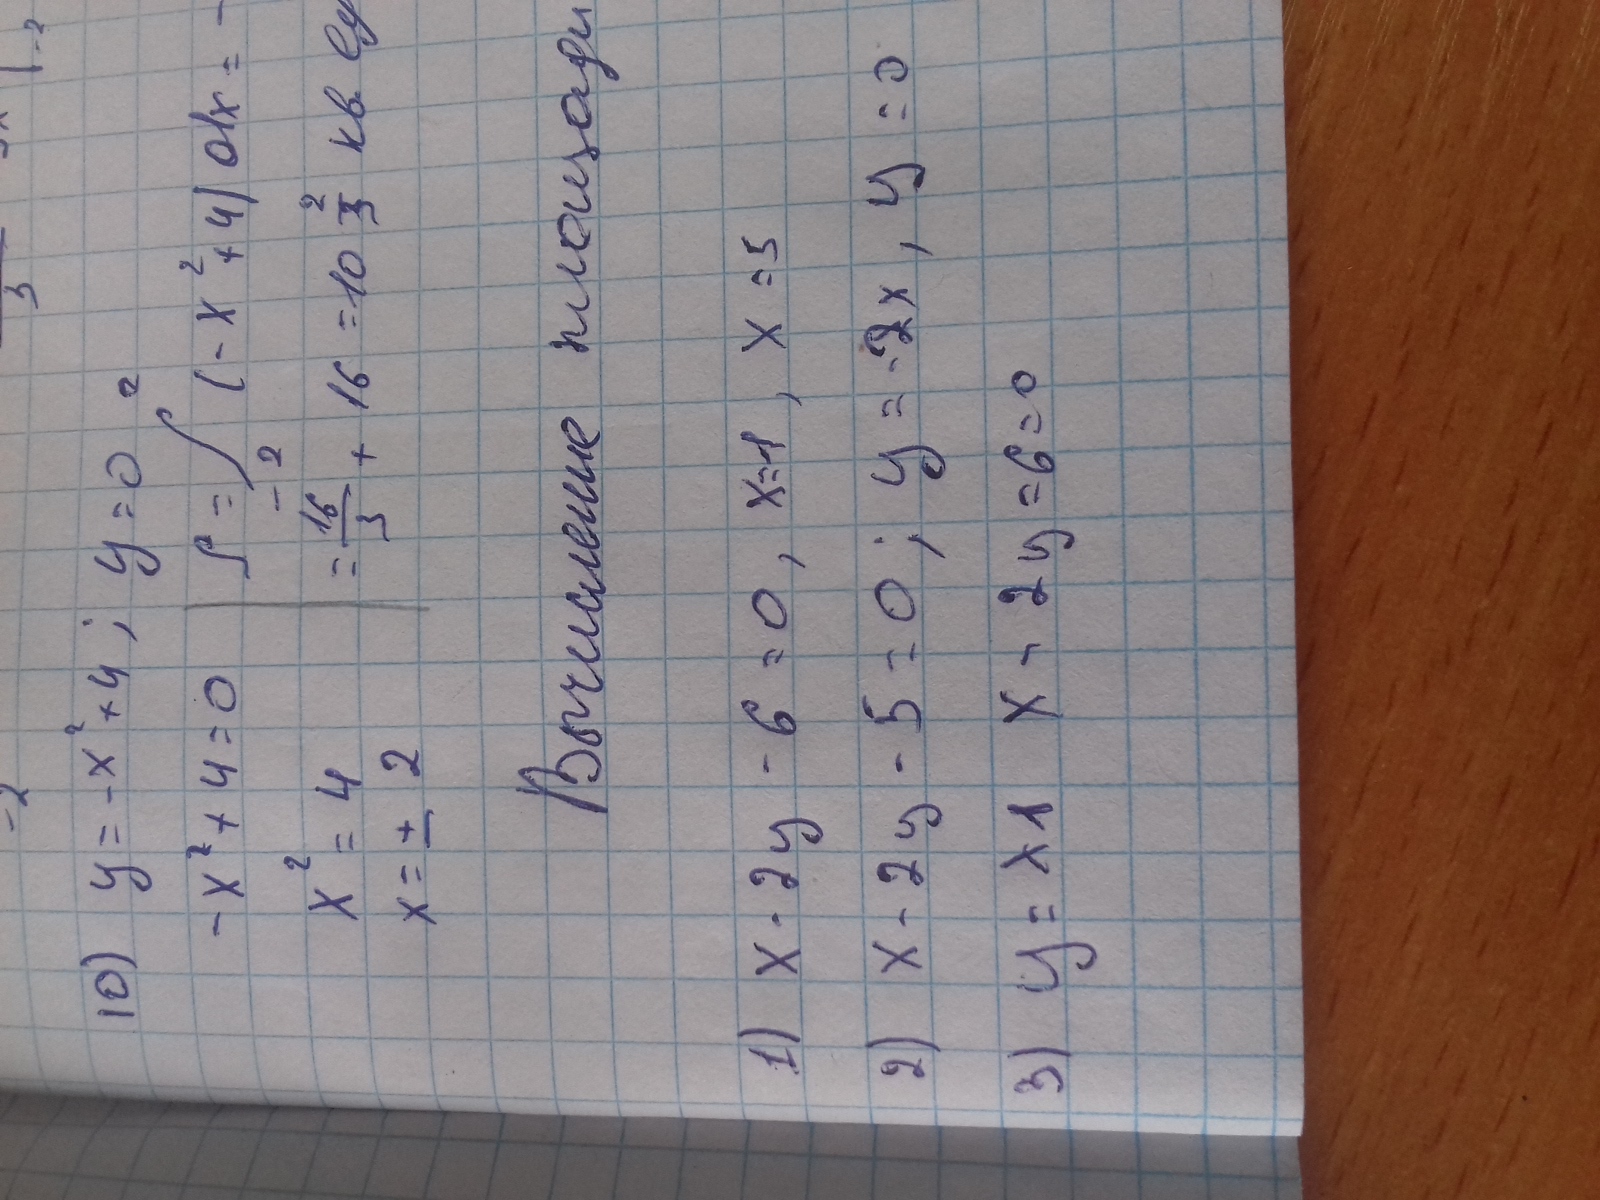 10) y = -x² + 4 ; y = 0
-x² + 4 = 0
x² = 4
x = ± 2
S = ∫ -2 2 (-x² + 4) dx = -
= 16/3 + 16 = 10 2/3 кв еу
Вычисление площади
1) x - 2y - 6 = 0, x = 1, x = 5
2) x - 2y - 5 = 0 ; y = -2x, y = 0
3) y = x1 x - 2y = 6 = 0